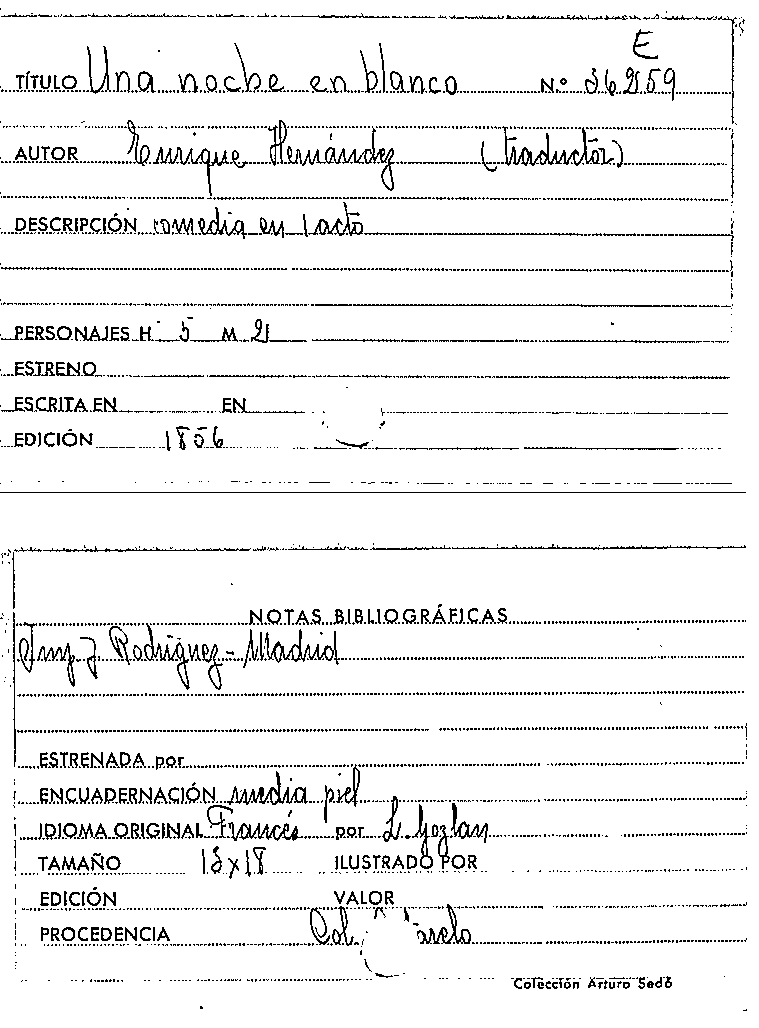 E
TÍTULO Una noche en blanco N.º
AUTOR Enrique Hernández (traductor)
DESCRIPCIÓN comedia en 1 acto
PERSONAJES H 5 M 2
ESTRENO
ESCRITA EN EN
EDICIÓN 1856
NOTAS BIBLIOGRÁFICAS
Imp J Rodriguez - Madrid
ESTRENADA por
ENCUADERNACIÓN media piel
IDIOMA ORIGINAL Francés por L. Gozlan
TAMAÑO ILUSTRADO POR
EDICIÓN VALOR
PROCEDENCIA Col.
Colección Arturo Sedó